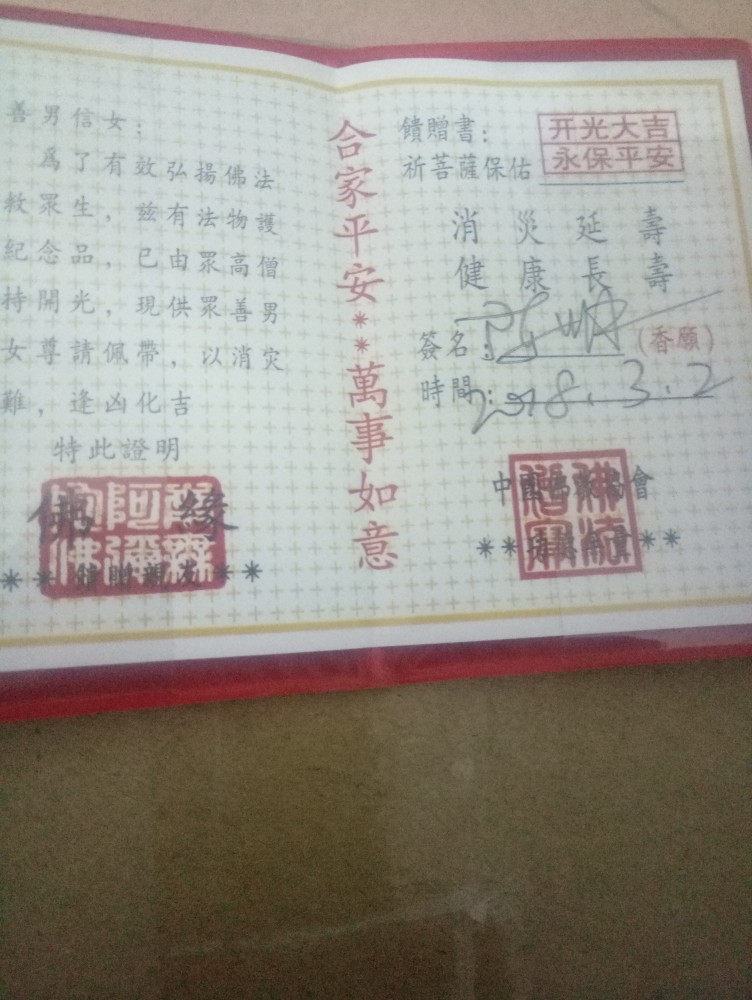 善男信女：
爲了有效弘揚佛法
救眾生，兹有法物護
紀念品，已由眾高僧
持開光，現供眾善男
女尊請佩帶，以消灾
難，逢凶化吉
特此證明
佛緣
**饋贈親友**
合家平安**萬事如意
饋贈書：
祈菩薩保佑
开光大吉
永保平安
消災延壽
健康長壽
簽名：
(香願)
時間：2018.3.2
中國佛教協會